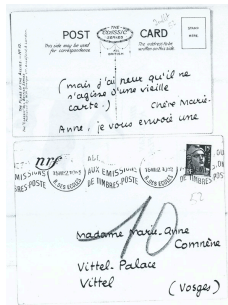 POST CARD
THE CLASSIC SERIES
This side may be used for correspondence
The address to be written on this side
(mais j'ai peur qu'il ne
s'agisse d'une vieille
carte.) Chère Marie-
Anne, je vous envoie une
nrf
AUX EMISSIONS
DE TIMBRES-POSTE
10
Madame Marie-Anne
Comnène
Vittel-Palace
Vittel
(Vosges)